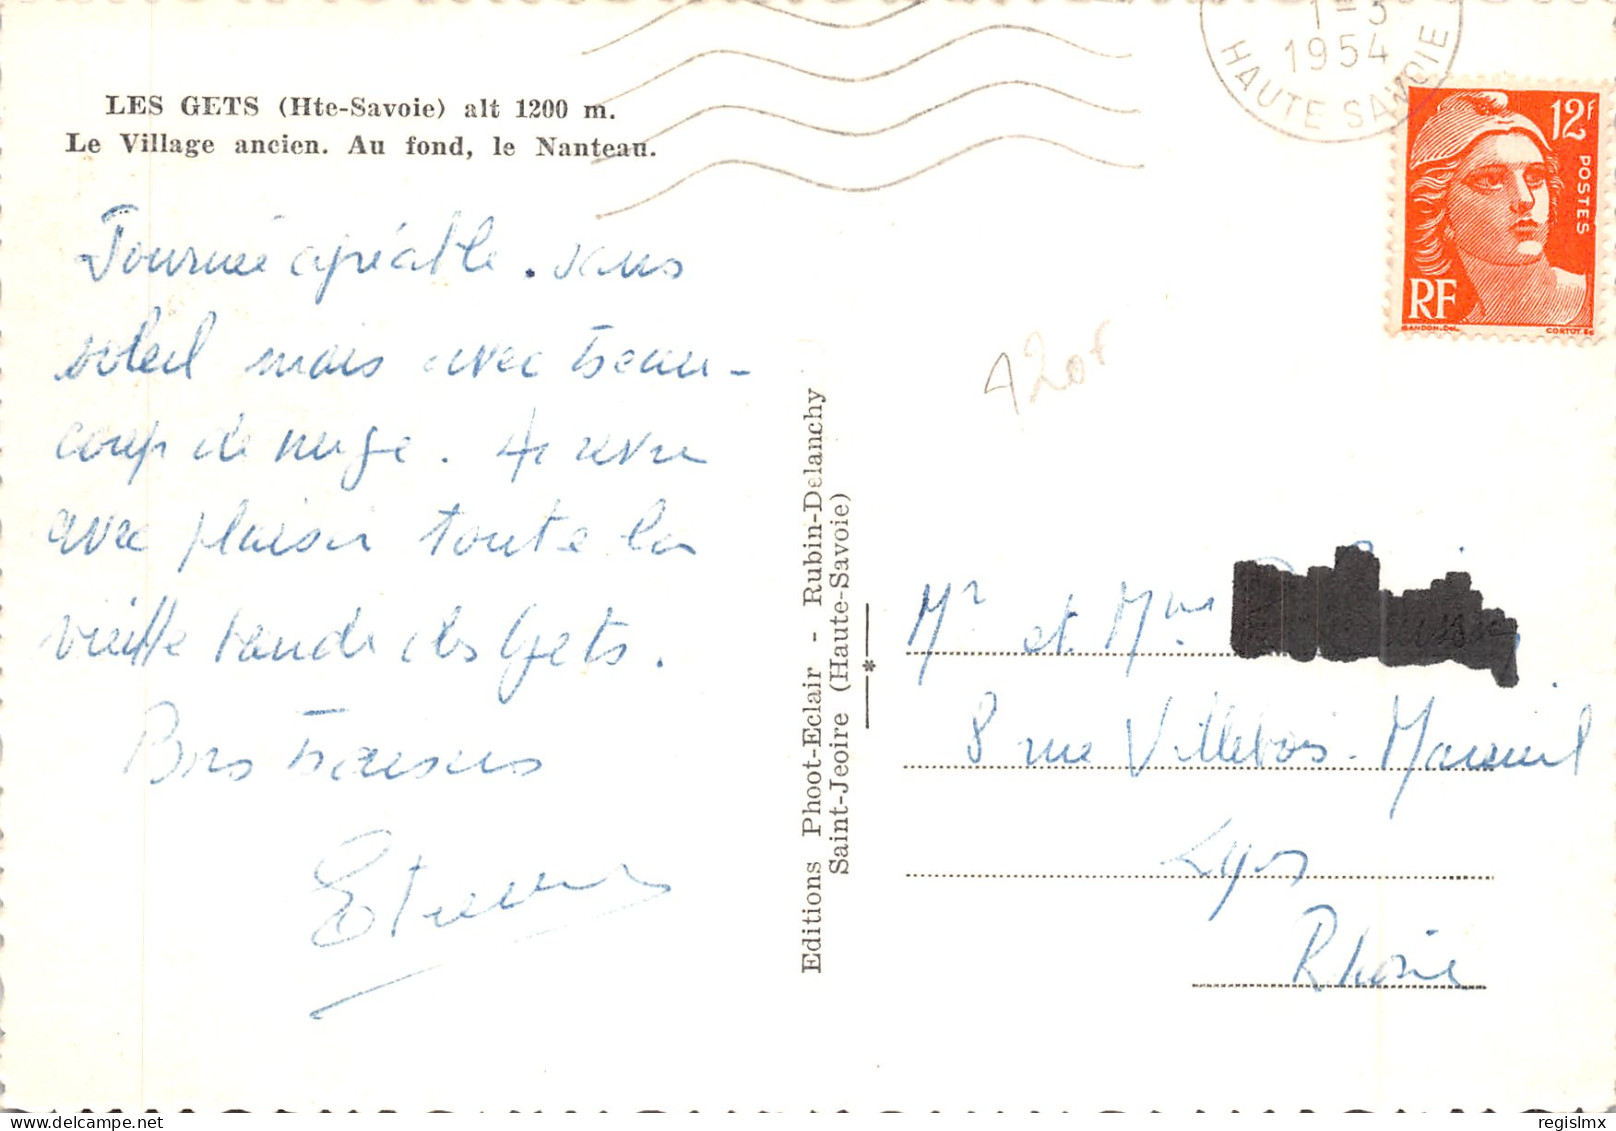 LES GETS (Hte-Savoie) alt 1200 m.
Le Village ancien. Au fond, le Nanteau.
Journée agréable. sans
soleil mais avec beau-
coup de neige. Ai revu
avec plaisir toute la
vieille bande des Gets.
Bons baisers
Editions Phoot-Eclair - Rubin-Delanchy
Saint-Jeoire (Haute-Savoie)
*
1-3
1954
HAUTE SAVOIE
12F
POSTES
RF
GANDON.DEL
CORTOT.SC
120F
Mr et Mme
8 rue Villebois-Mareuil
Lyon
Rhône
delcampe.net
regislmx